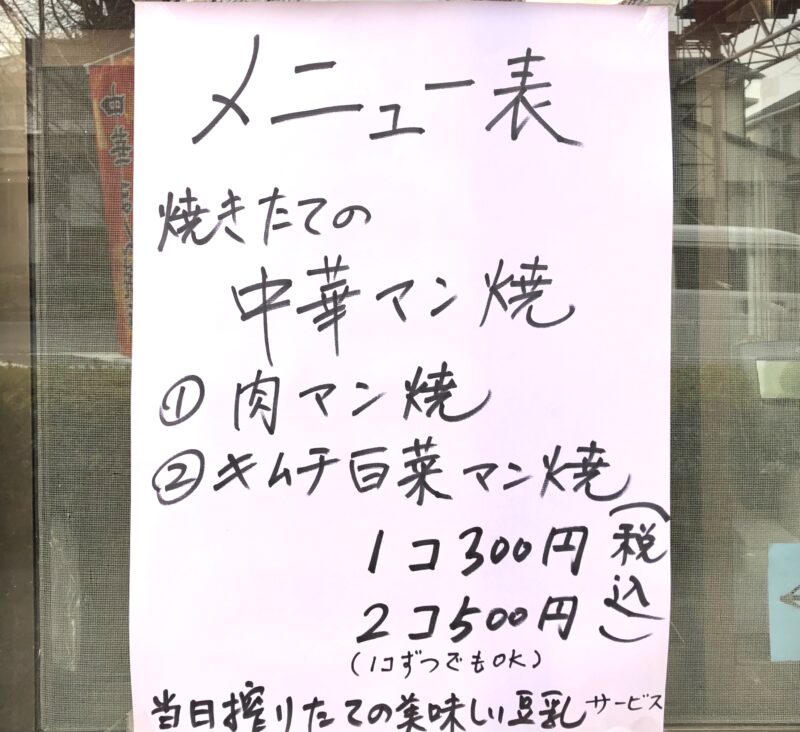 メニュー表
焼きたての
中華マン焼
① 肉マン焼
② キムチ白菜マン焼
1コ300円
2コ500円
(税込)
(1コずつでもOK)
当日搾りたての美味しい豆乳サービス
中華